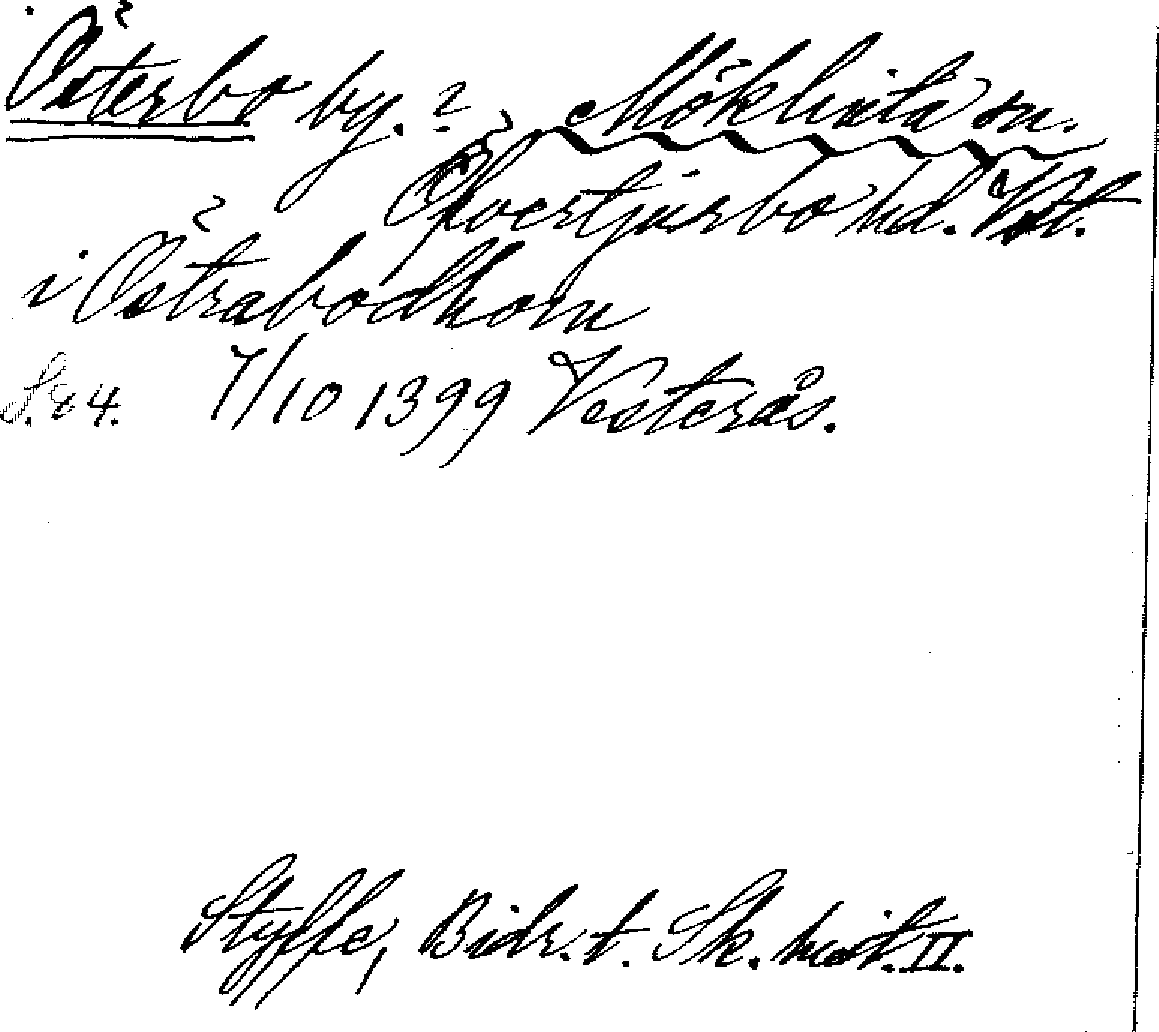 Österbo by.? Möklinta sn.
Övertjurbo hd. Vstl.
i Östrabodhom
S. 84. 7/10 1399 Vesterås.
Styffe, Bidr. t. Sk. hist. II.